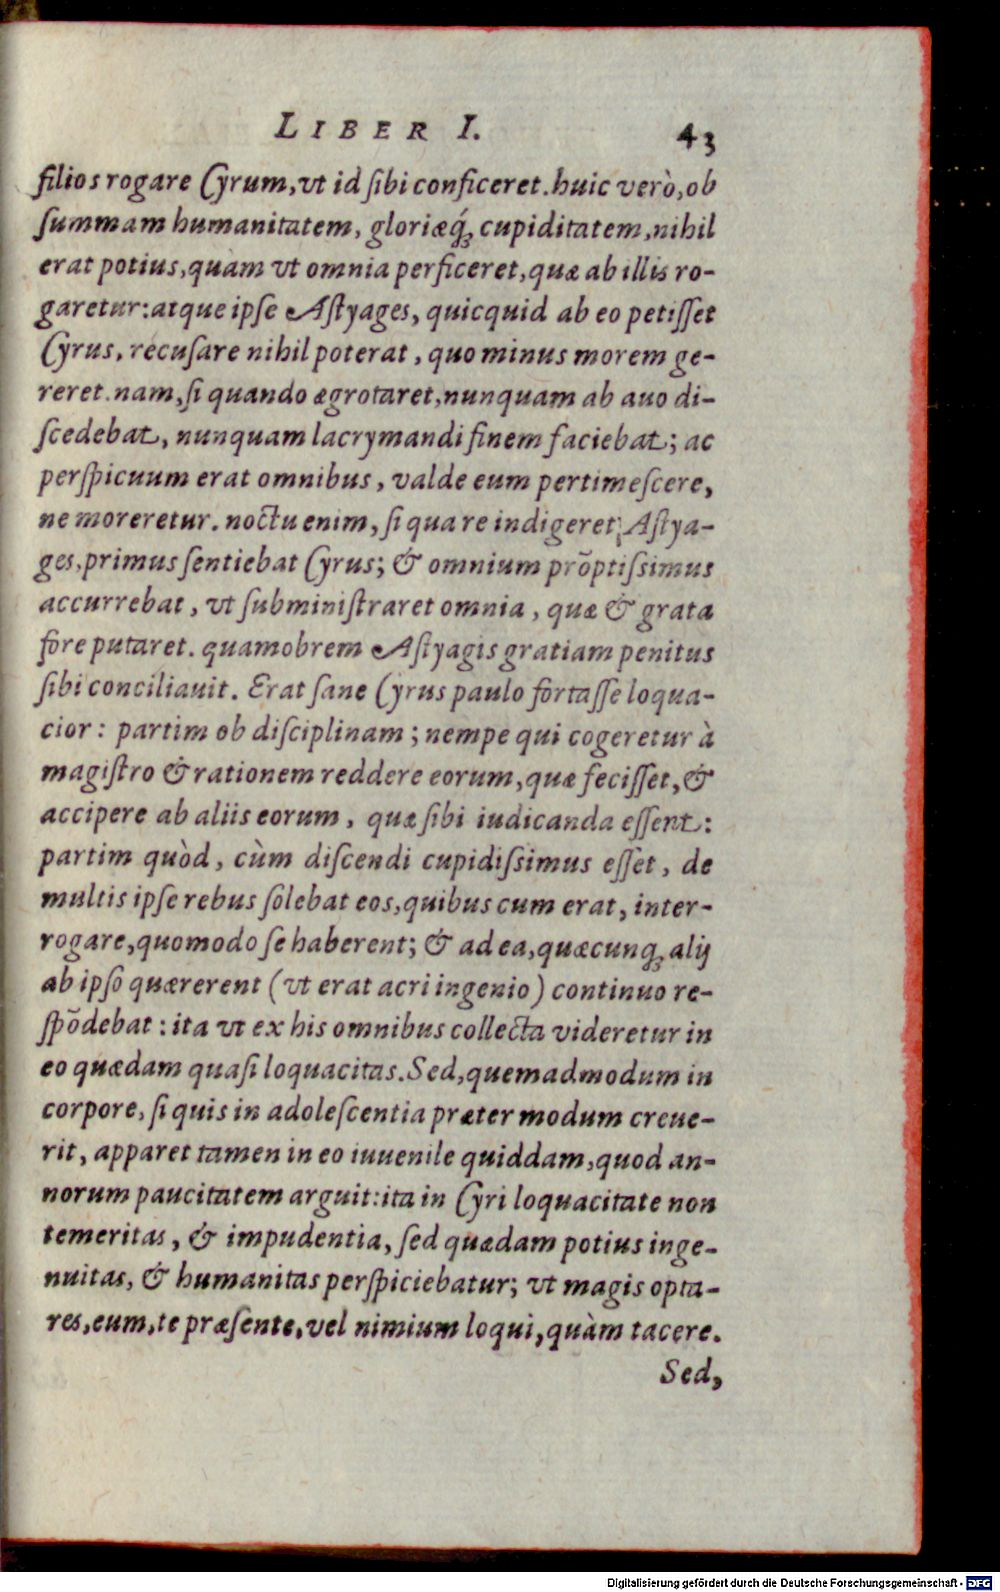 LIBER I. 43
filios rogare Cyrum, vt id ſibi conficeret. huic verò, ob
ſummam humanitatem, gloriæq́; cupiditatem, nihil
erat potius, quàm vt omnia perficeret, quæ ab illis ro-
garetur: atque ipſe Aſtyages, quicquid ab eo petiſſet
Cyrus, recuſare nihil poterat, quo minus morem ge-
reret. nam, ſi quando ægrotaret, nunquam ab auo di-
ſcedebat, nunquam lacrymandi finem faciebat; ac
perſpicuum erat omnibus, valde eum pertimeſcere,
ne moreretur. noctu enim, ſi qua re indigeret Aſtya-
ges, primus ſentiebat Cyrus; & omnium prõptiſsimus
accurrebat, vt ſubminiſtraret omnia, quæ & grata
fore putaret. quamobrem Aſtyagis gratiam penitus
ſibi conciliauit. Erat ſane Cyrus paulo fortaſſe loqua-
cior: partim ob diſciplinam; nempe qui cogeretur à
magiſtro & rationem reddere eorum, quæ feciſſet, &
accipere ab aliis eorum, quæ ſibi iudicanda eſſent:
partim quòd, cùm diſcendi cupidiſsimus eſſet, de
multis ipſe rebus ſolebat eos, quibus cum erat, inter-
rogare, quomodo ſe haberent; & ad ea, quæcunq; alij
ab ipſo quærerent (vt erat acri ingenio) continuo re-
ſpõdebat: ita vt ex his omnibus collecta videretur in
eo quædam quaſi loquacitas. Sed, quemadmodum in
corpore, ſi quis in adoleſcentia præter modum creue-
rit, apparet tamen in eo iuuenile quiddam, quod an-
norum paucitatem arguit: ita in Cyri loquacitate non
temeritas, & impudentia, ſed quædam potius inge-
nuitas, & humanitas perſpiciebatur; vt magis opta-
res, eum, te præſente, vel nimium loqui, quàm tacere.
Sed,
Digitalisierung gefördert durch die Deutsche Forschungsgemeinschaft - DFG